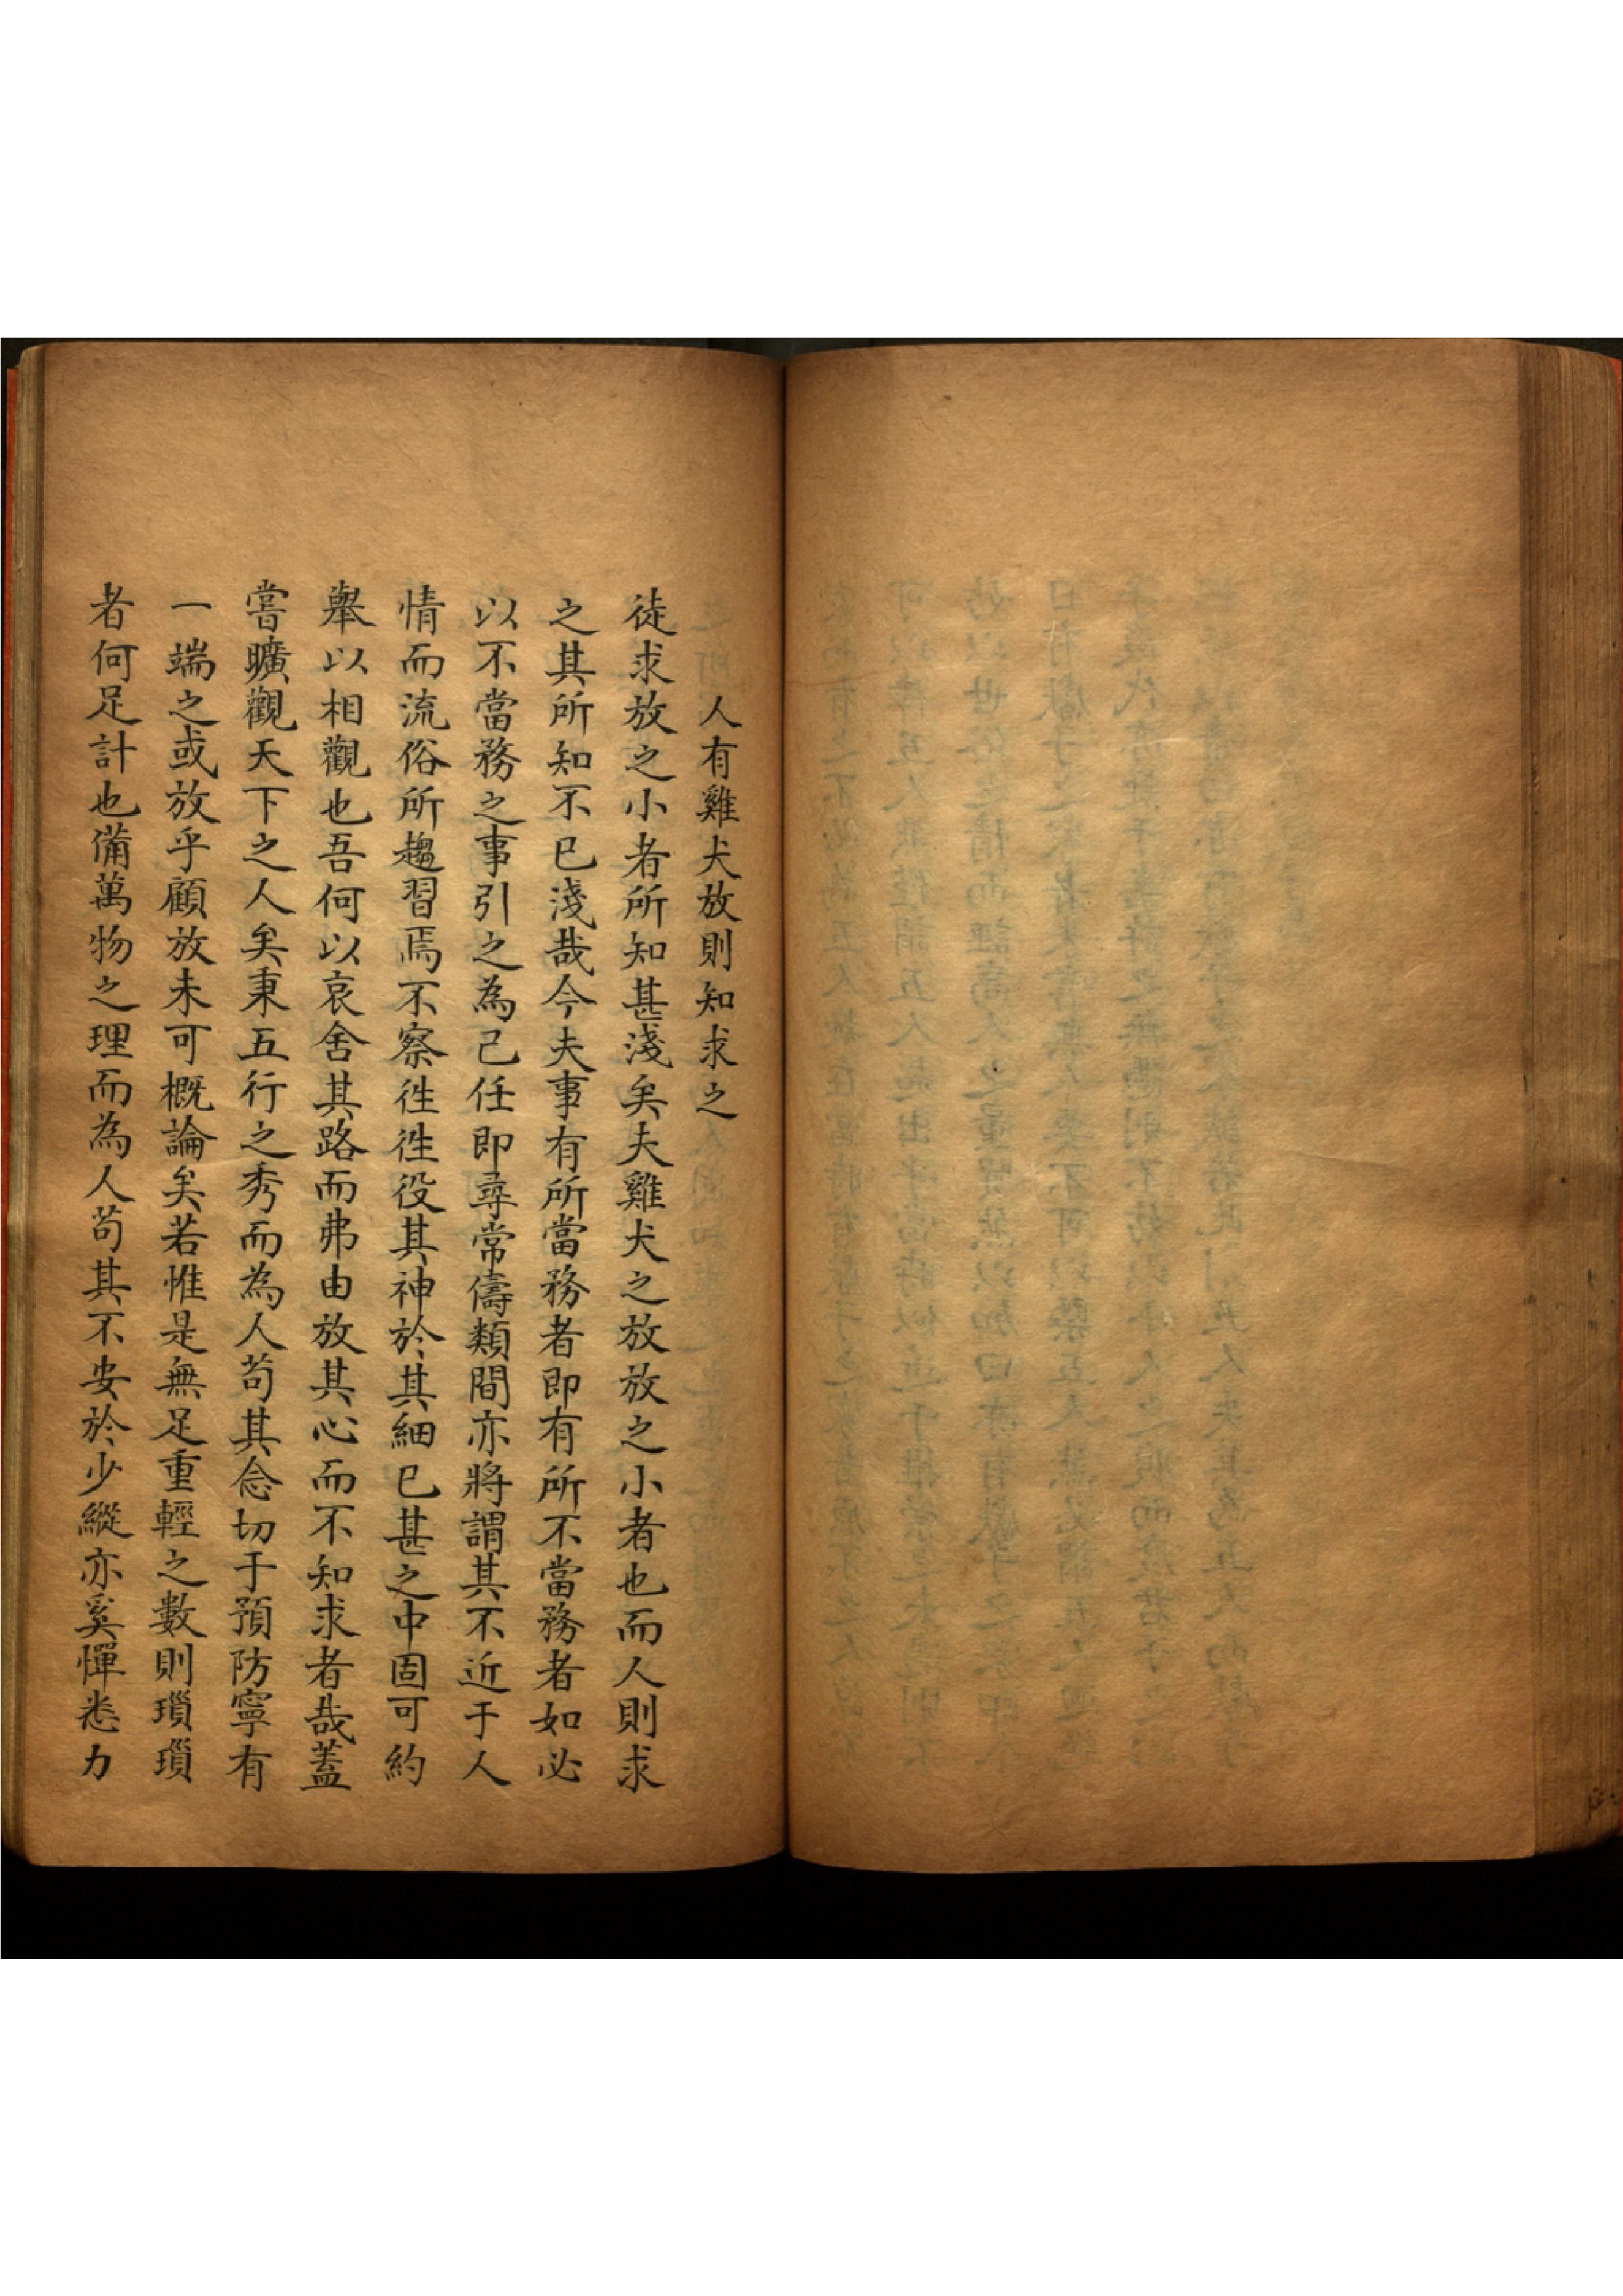 人有雞犬放則知求之
徒求放之小者所知甚淺矣夫雞犬之放放之小者也而人則求
之其所知不已淺哉今夫事有所當務者即有所不當務者如必
以不當務之事引之為己任即尋常儔類間亦將謂其不近于人
情而流俗所趨習焉不察徃徃役其神於其細已甚之中固可約
舉以相觀也吾何以哀舍其路而弗由放其心而不知求者哉蓋
嘗曠觀天下之人矣秉五行之秀而為人苟其念切于預防寧有
一端之或放乎顧放未可概論矣若惟是無足重輕之數則瑣瑣
者何足計也備萬物之理而為人苟其不安於少縱亦奚憚悉力